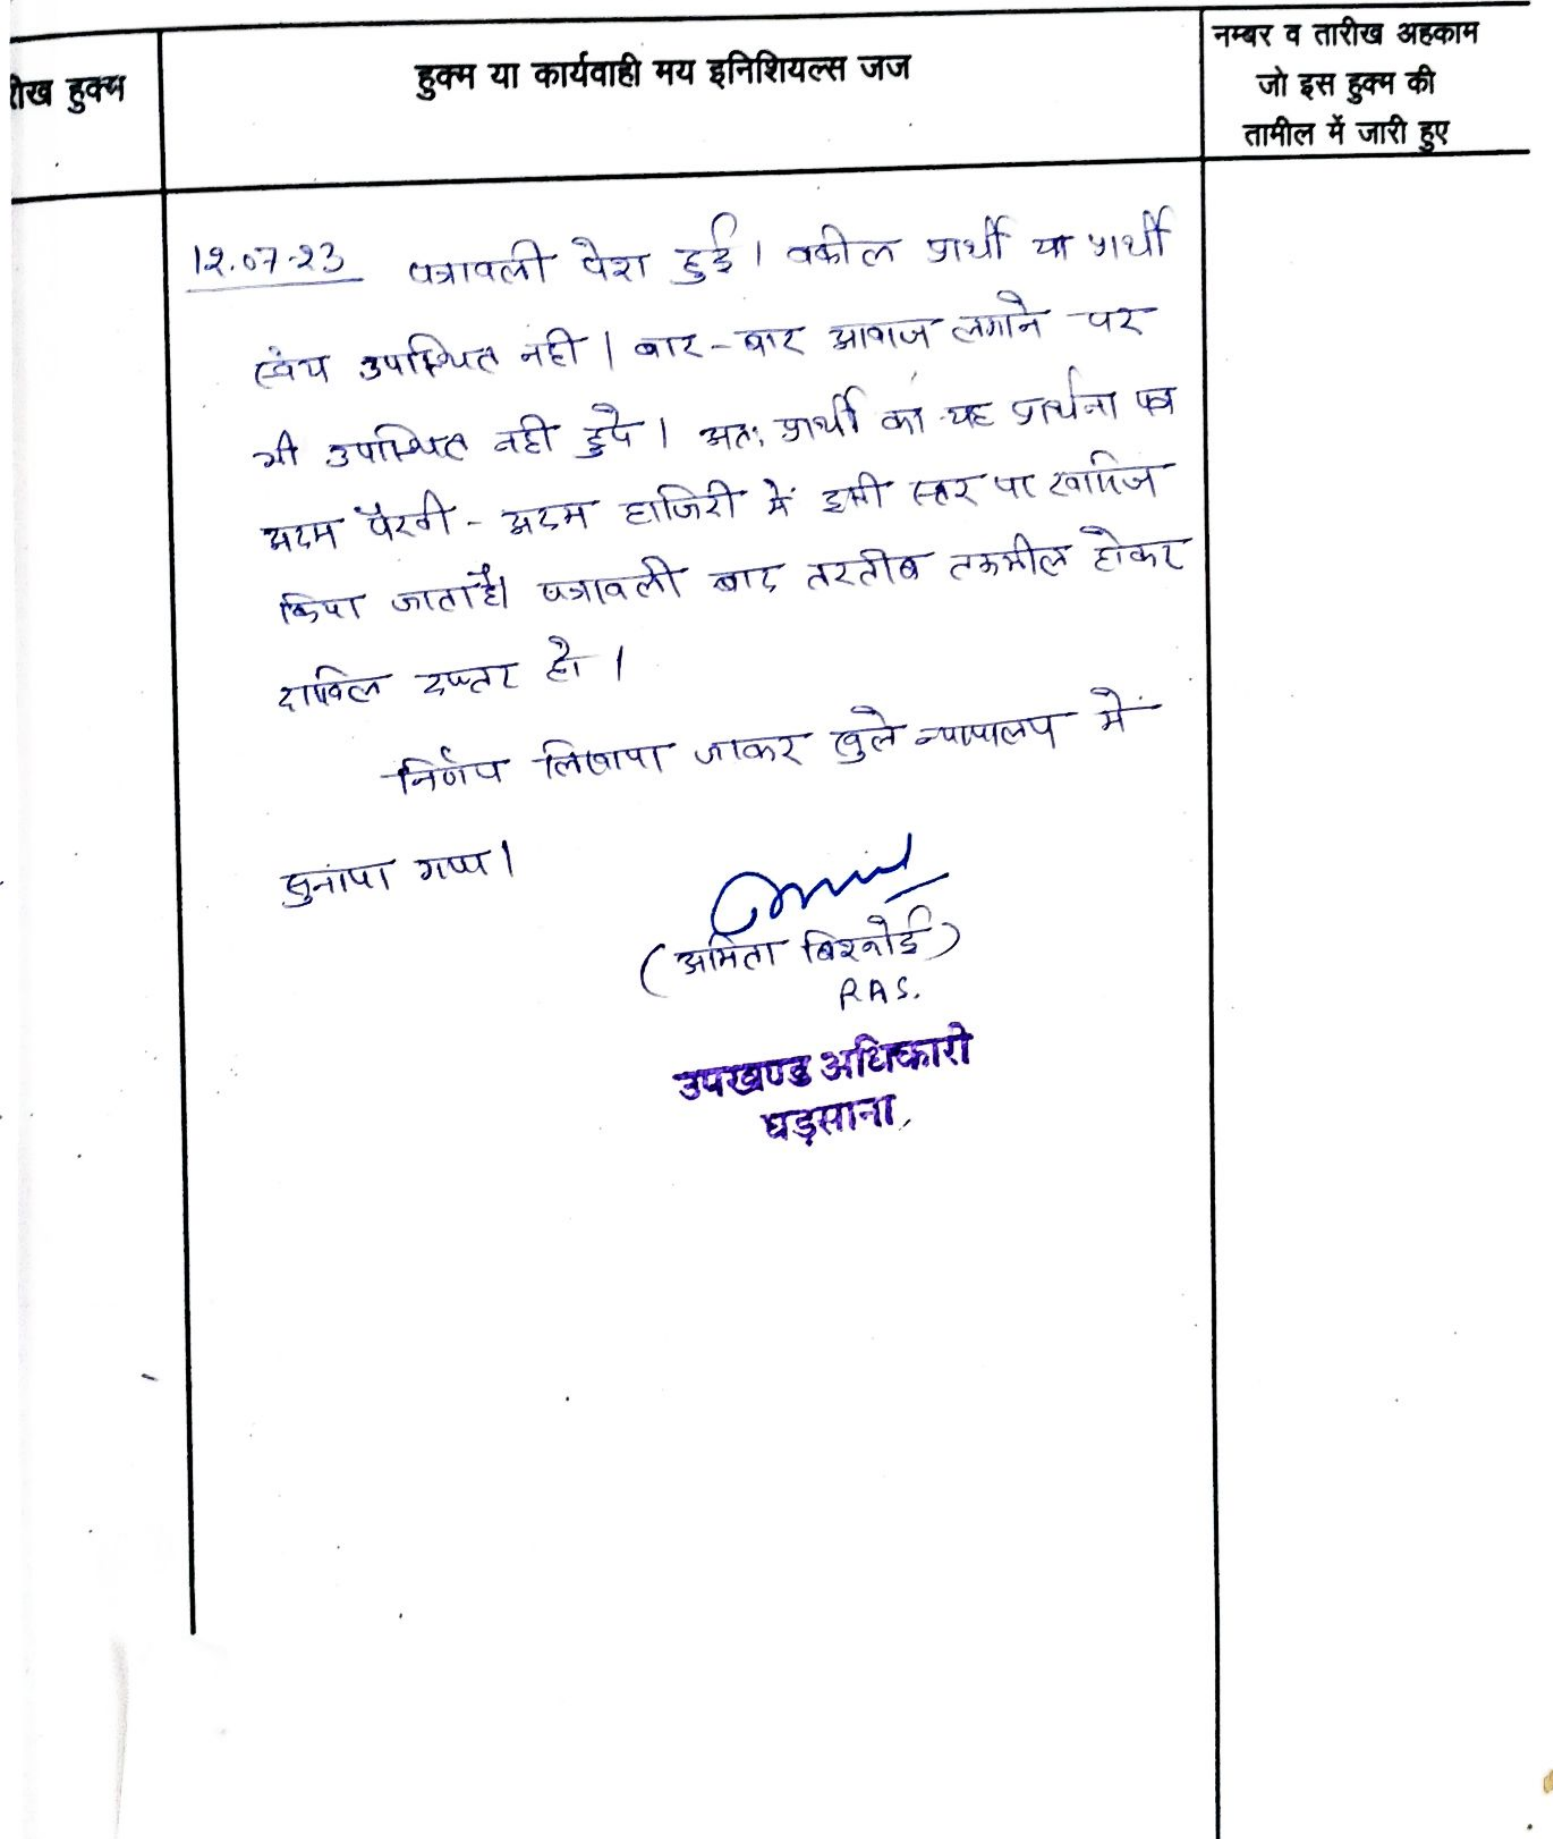 रीख हुक्म
हुक्म या कार्यवाही मय इनिशियल्स जज
नम्बर व तारीख अहकाम
जो इस हुक्म की
तामील में जारी हुए
12.07.23 पत्रावली पेश हुई। वकील प्रार्थी या प्रार्थी
स्वंय उपस्थित नही। बार-बार आवाज लगाने पर
भी उपस्थित नही हुये। अतः प्रार्थी का यह प्रार्थना पत्र
अदम पैरवी - अदम हाजिरी में इसी स्तर पर खारिज
किया जाता है। पत्रावली बाद तरतीब तकमील होकर
दाखिल दफ्तर हो।
निर्णय लिखाया जाकर खुले न्यायालय में
सुनाया गया।
(अमिता बिश्नोई)
RAS.
उपखण्ड अधिकारी
घड़साना